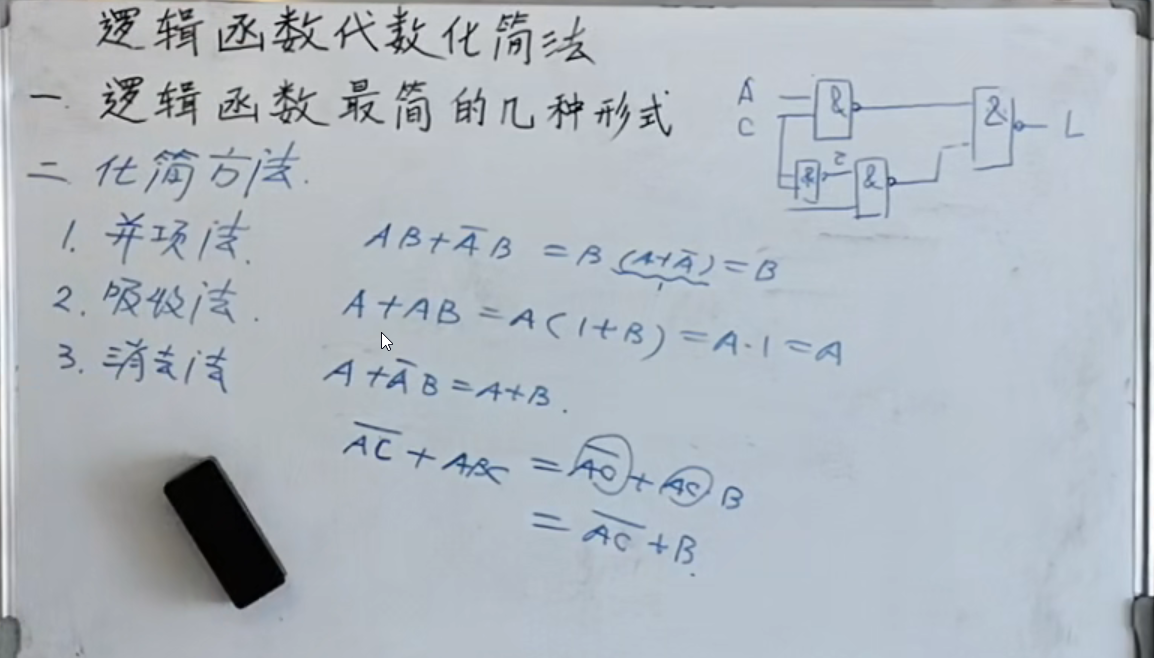 逻辑函数代数化简法
一 逻辑函数最简的几种形式
A
C
&
&
&
&
L
二 化简方法.
1. 并项法. AB+A̅B = B(A+A̅) = B
1
2. 吸收法. A+AB = A(1+B) = A·1 = A
3. 消去法 A+A̅B = A+B.
A̅C̅ + ABC = A̅C̅ + AC B
= A̅C̅ + B.